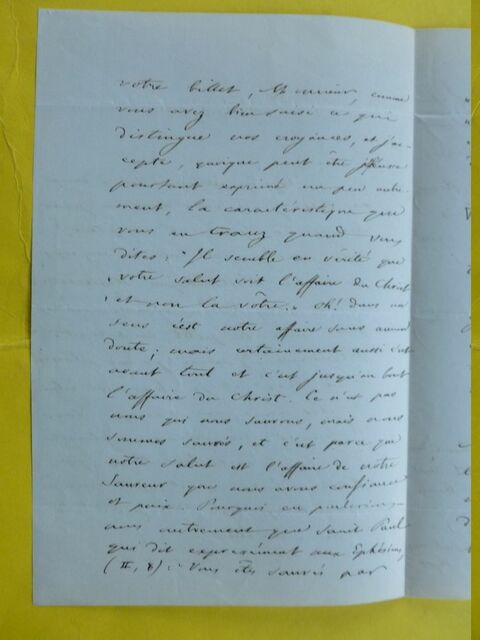 votre billet, Monsieur, comme
vous avez bien saisi ce qui
distingue nos croyances, et j'ac-
cepte, quoique peut être j'eusse
pourtant exprimé un peu autre-
ment, la caractéristique que
vous en tracez quand vous
dites: "Il semble en vérité que
"votre salut soit l'affaire du Christ
"et non la vôtre." Oh! dans un
sens c'est notre affaire sans aucun
doute; mais certainement aussi c'est
avant tout et c'est jusqu'au bout
l'affaire du Christ. Ce n'est pas
nous qui nous sauvons, mais nous
sommes sauvés, et c'est parce que
notre salut est l'affaire de notre
Sauveur que nous avons confiance
et paix. Pourquoi en parlerions-
nous autrement que Saint Paul
qui dit expressément aux Ephésiens
(II, 8): "Vous êtes sauvés par